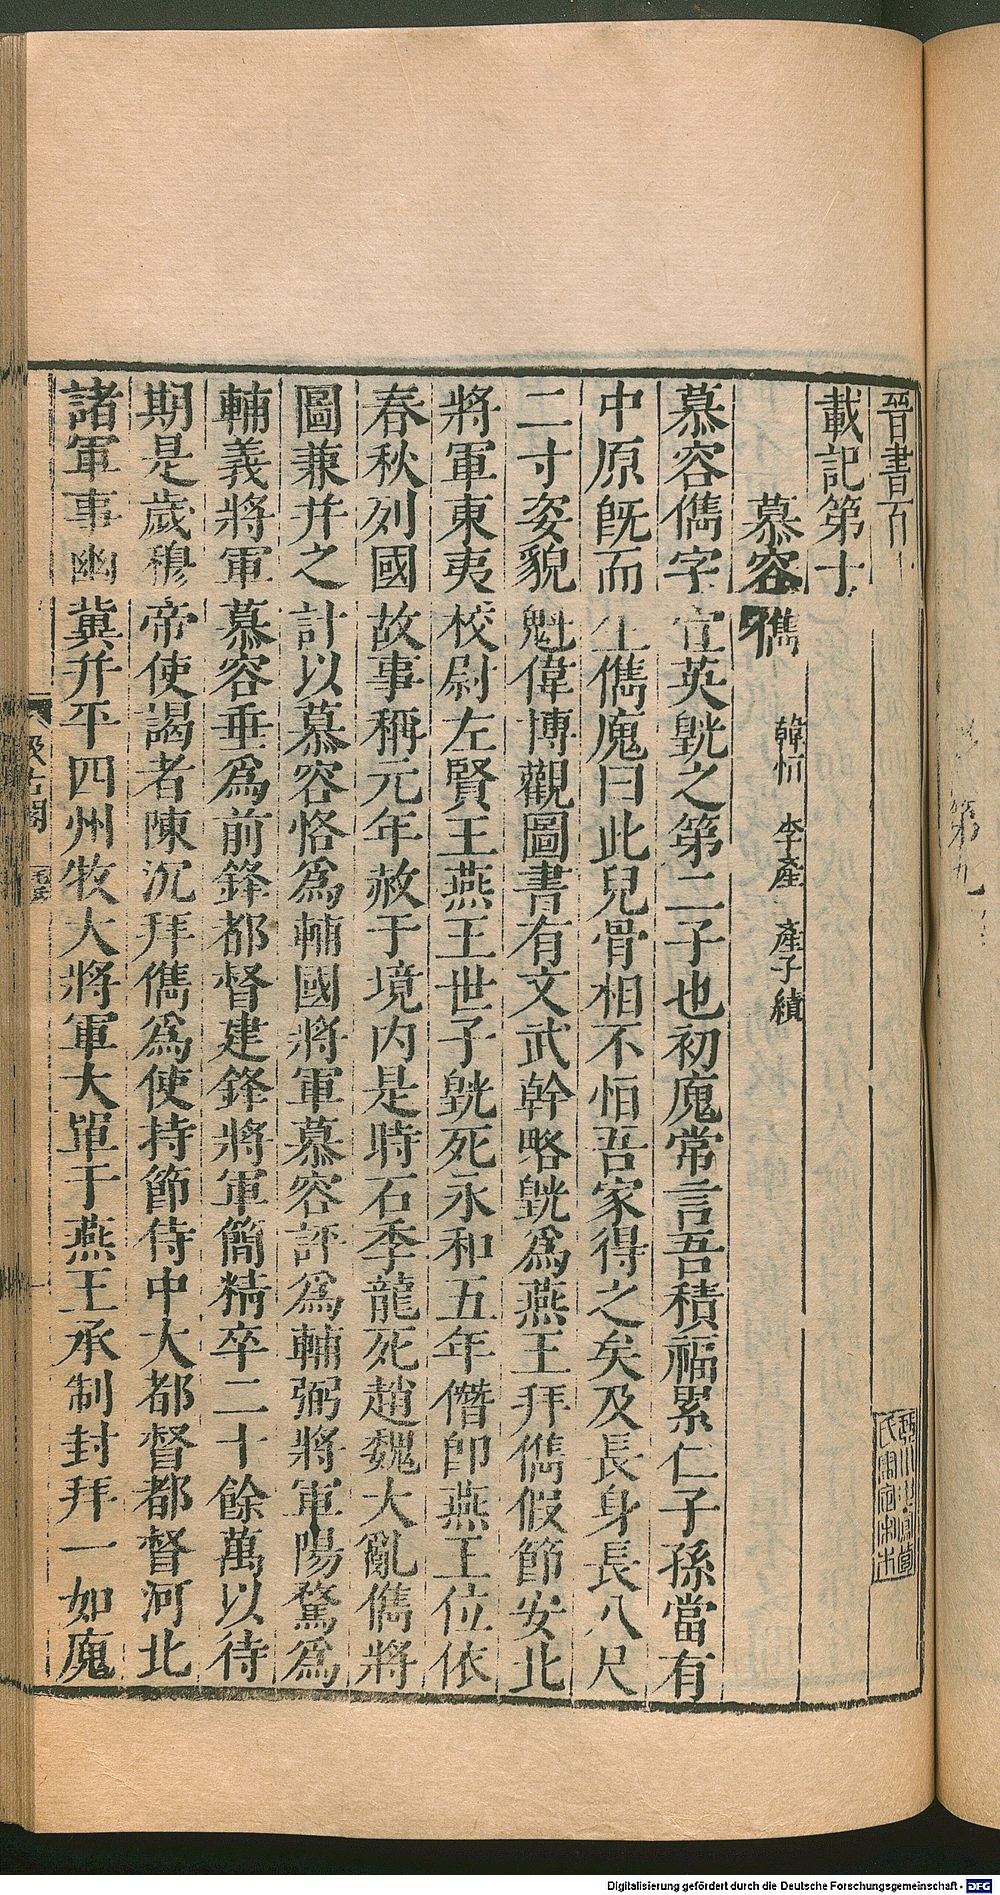 晉書百十
載記第十
慕容儁 韓恒 李產 產子績
慕容儁字宣英皝之第二子也初廆常言吾積福累仁子孫當有
中原旣而生儁廆曰此兒骨相不恒吾家得之矣及長身長八尺
二寸姿貌魁偉博觀圖書有文武幹略皝爲燕王拜儁假節安北
將軍東夷校尉左賢王燕王世子皝死永和五年僭卽燕王位依
春秋列國故事稱元年赦于境内是時石季龍死趙魏大亂儁將
圖兼并之計以慕容恪爲輔國將軍慕容評爲輔弼將軍陽騖爲
輔義將軍慕容垂爲前鋒都督建鋒將軍簡精卒二十餘萬以待
期是歲穆帝使謁者陳沉拜儁爲使持節侍中大都督都督河北
諸軍事幽冀并平四州牧大將軍大單于燕王承制封拜一如廆
汲古閣
毛氏
第九
Digitalisierung gefördert durch die Deutsche Forschungsgemeinschaft - DFG